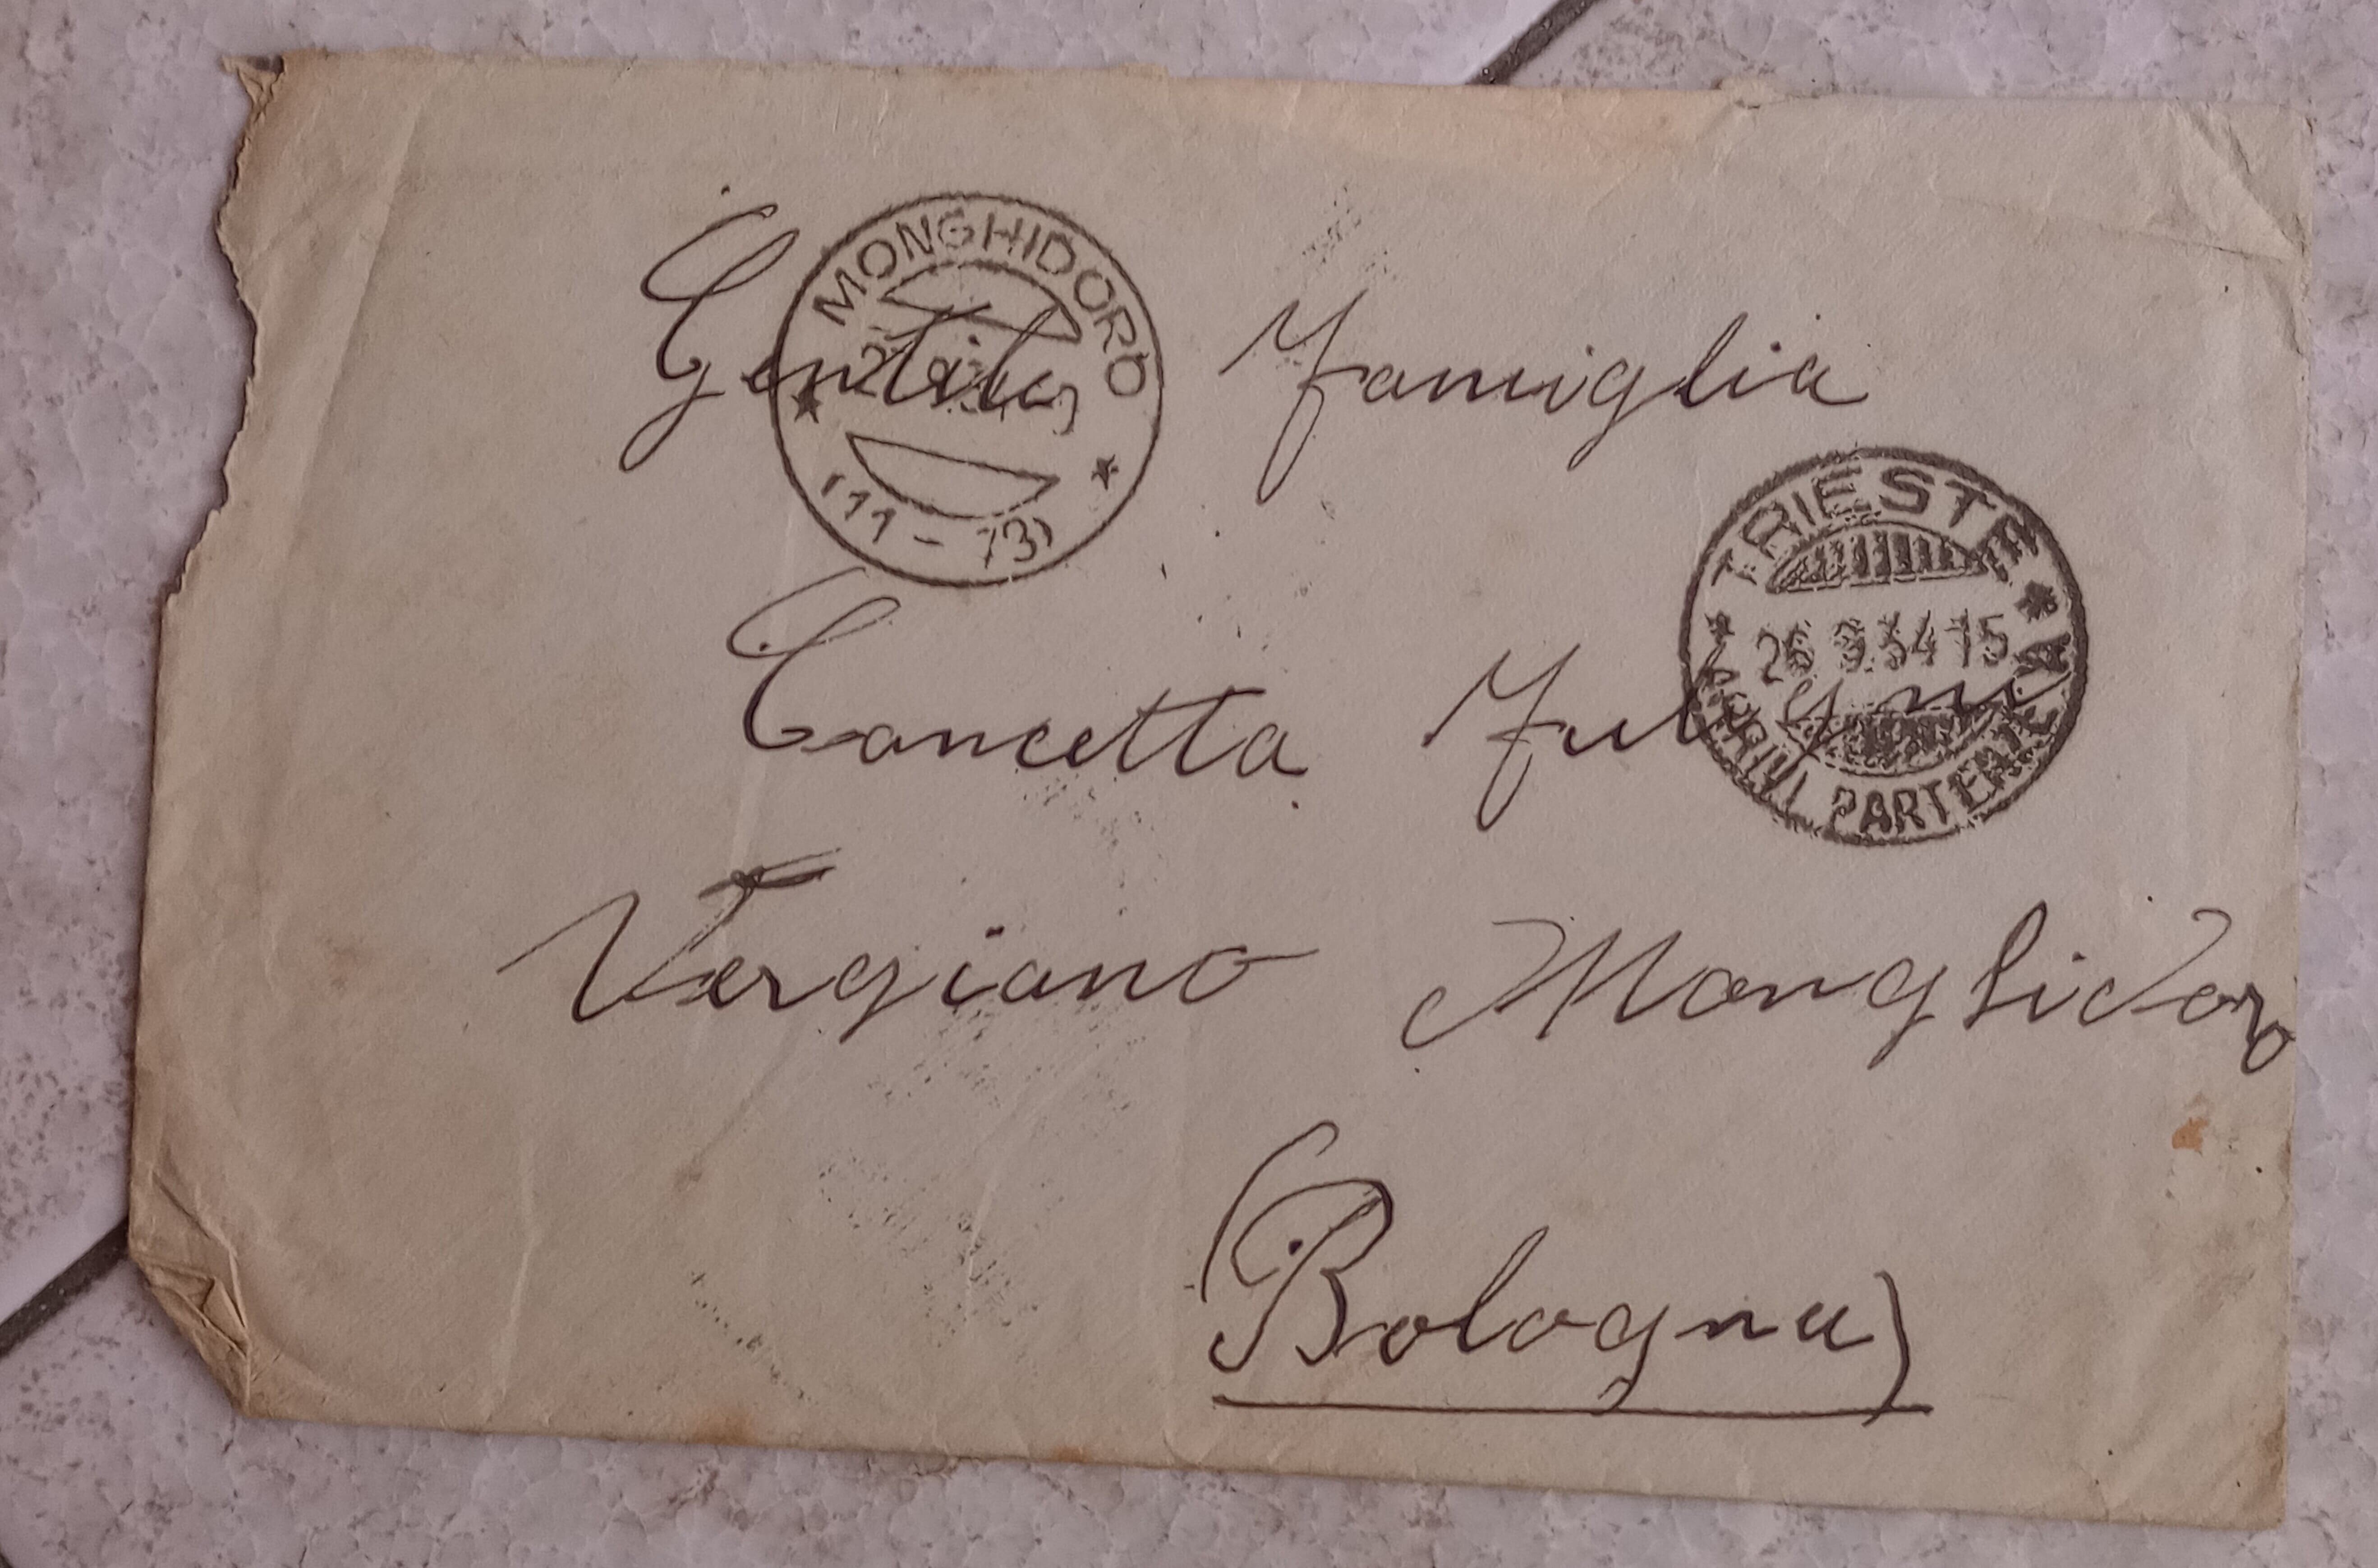 MONGHIDORO
(11-73)
Gentile Famiglia
TRIESTE
26 9.34 15
PARTENZA
Concetta
Vergiano Monghidoro
(Bologna)